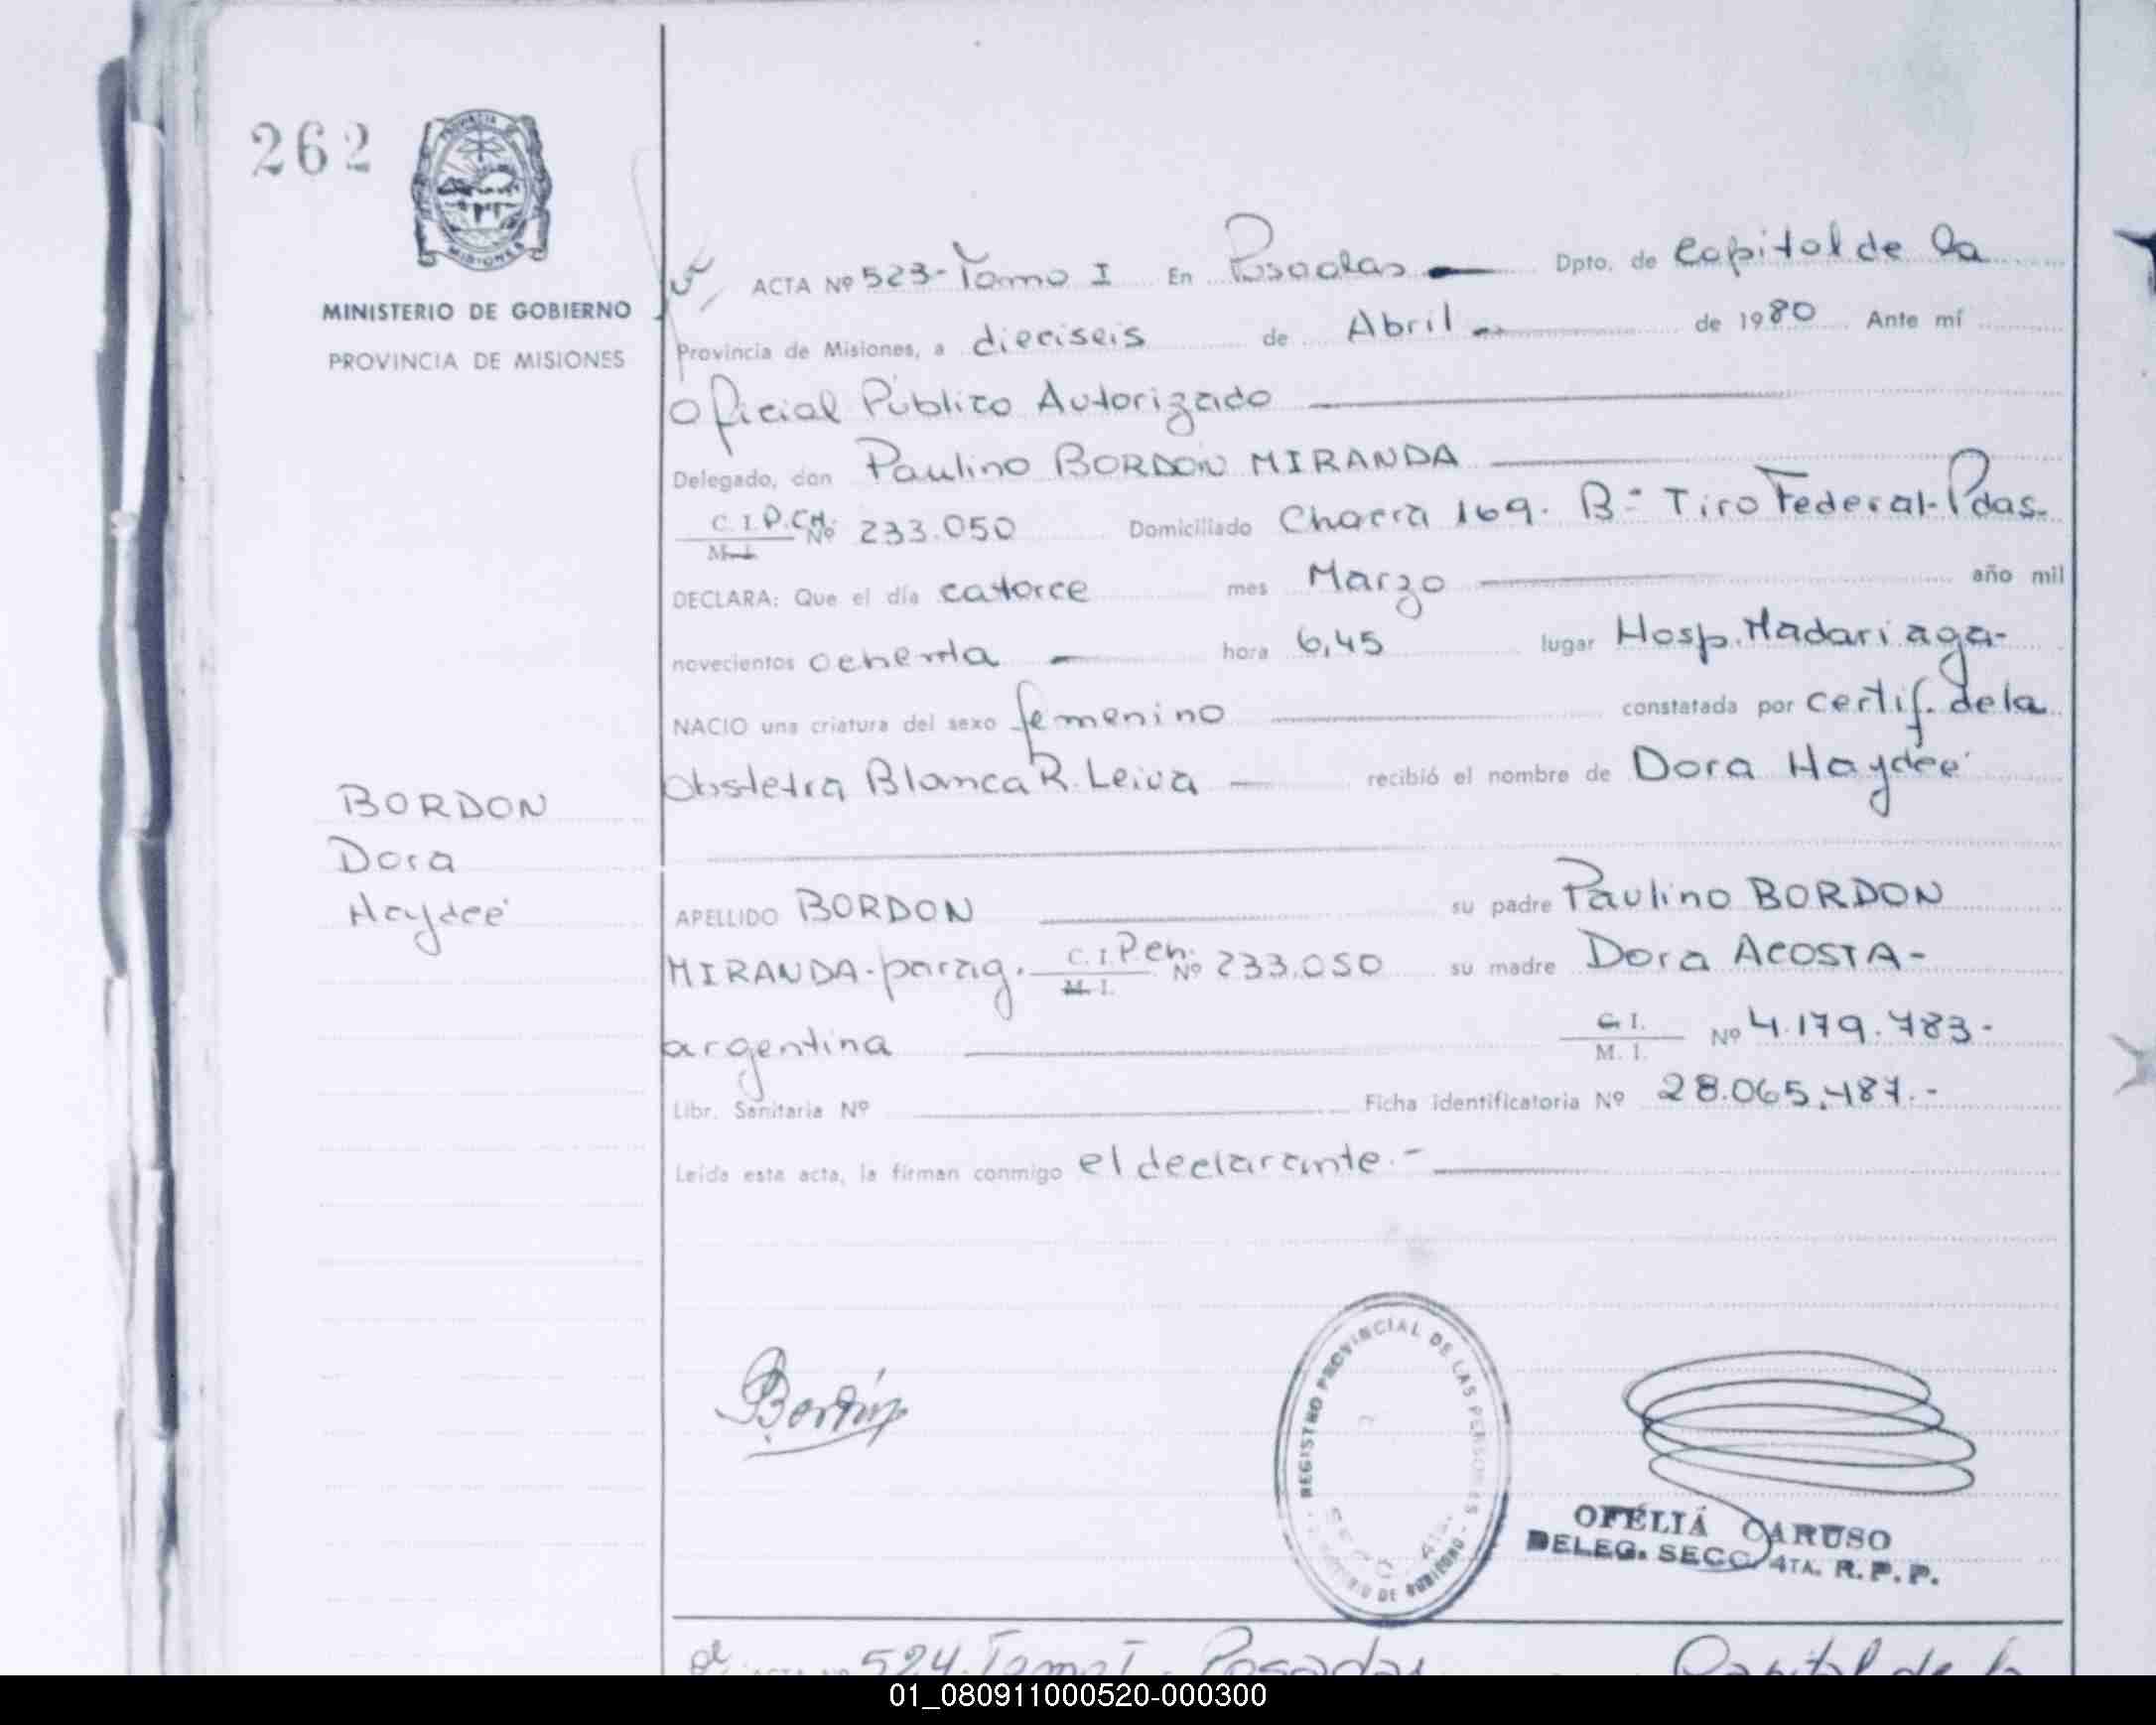 262
MINISTERIO DE GOBIERNO
PROVINCIA DE MISIONES
BORDON
Dora
Haydeé
ACTA Nº 523-Tomo I En Posadas Dpto. de Capital de la
Provincia de Misiones, a dieciseis de Abril de 1980 Ante mí
Oficial Público Autorizado
Delegado, don Paulino BORDON MIRANDA
C.I.P.CH. Nº 233.050 Domiciliado Chacra 169. Bº Tiro Federal-Pdas.
M.I.
DECLARA: Que el día catorce mes Marzo año mil
novecientos ochenta hora 6,45 lugar Hosp. Madariaga-
NACIO una criatura del sexo femenino constatada por certif. de la
Obstetra Blanca R. Leiva recibió el nombre de Dora Haydeé
APELLIDO BORDON su padre Paulino BORDON
MIRANDA-parag. C.I.Pch. Nº 233.050 su madre Dora ACOSTA-
M.I.
argentina C.I. Nº 4.179.783-
M. I.
Libr. Sanitaria Nº Ficha identificatoria Nº 28.065.487.-
Leída esta acta, la firman conmigo el declarante.-
Bordón
REGISTRO PROVINCIAL DE LAS PERSONAS
SECC. 4ta.
DE GOBIERNO
OFELIA CARUSO
DELEG. SECC. 4TA. R.P.P.
524. Tomo I. Posadas Capital de la
01_080911000520-000300